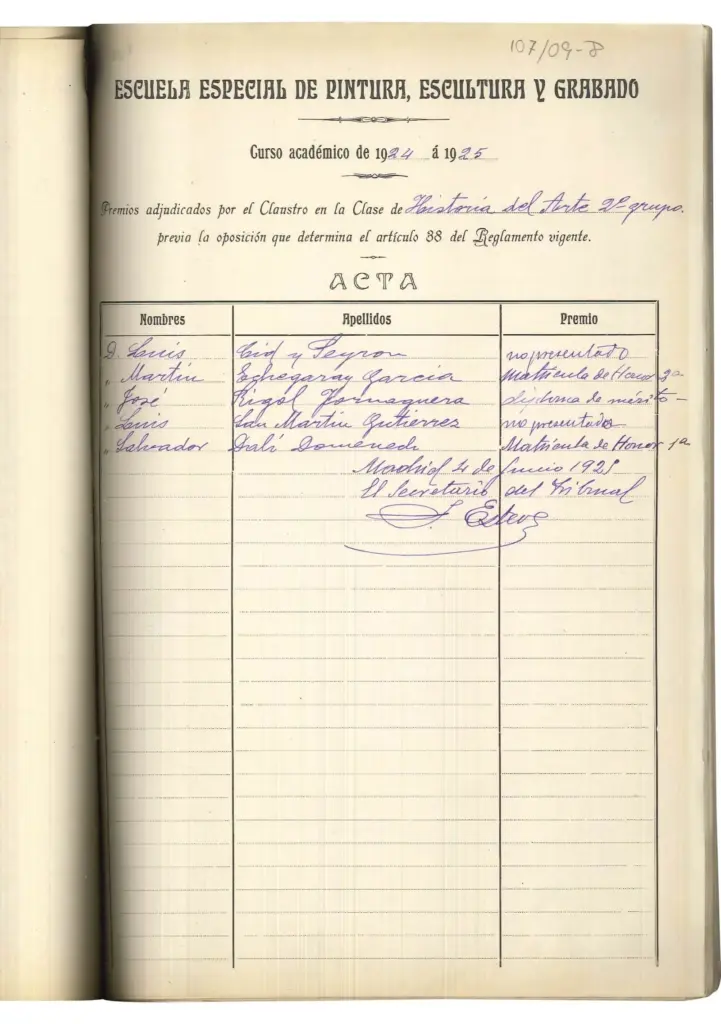 107/09-8
ESCUELA ESPECIAL DE PINTURA, ESCULTURA Y GRABADO
Curso académico de 1924 á 1925
Premios adjudicados por el Claustro en la Clase de Historia del Arte 2º grupo.
previa la oposición que determina el artículo 38 del Reglamento vigente.
ACTA
Nombres Apellidos Premio
D. Luis Cid y Peyron no presentado
" Martín Echegaray García Matrícula de Honor 2ª
" José Rigol Fornaguera diploma de mérito -
" Luis San Martín Gutierrez no presentado
" Salvador Dalí Domenech Matrícula de Honor 1ª
Madrid 4 de Junio 1925
El Secretario del Tribunal
J. Esteve